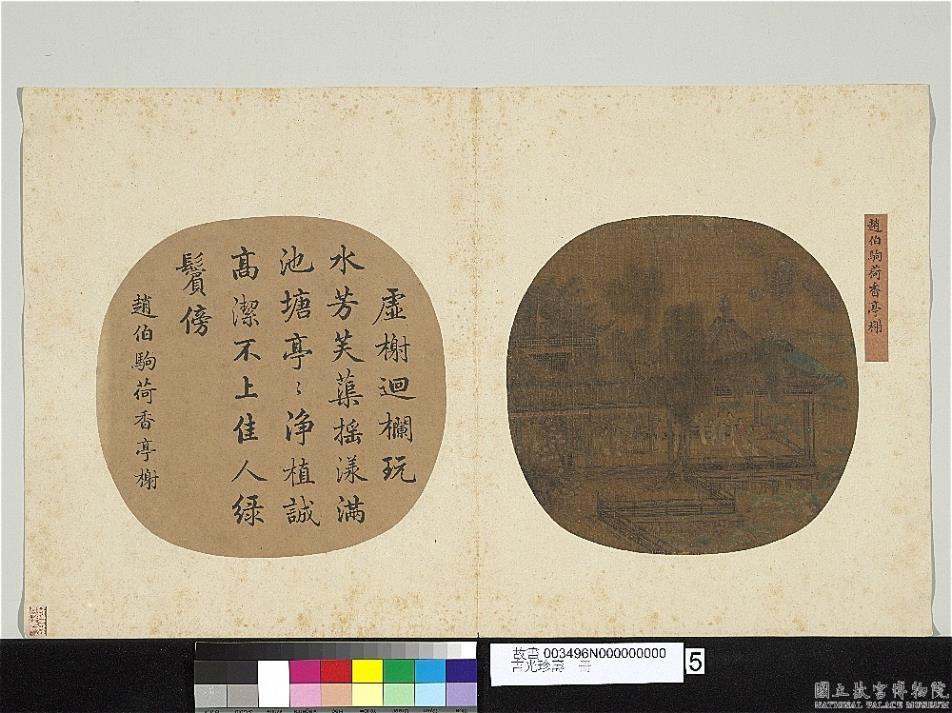 趙伯駒荷香亭榭
虛榭迴欄玩
水芳芙蕖搖漾滿
池塘亭〻淨植誠
高潔不上佳人綠
鬢傍
趙伯駒荷香亭榭
故畫 003496N000000000
5
國立故宮博物院
NATIONAL PALACE MUSEUM